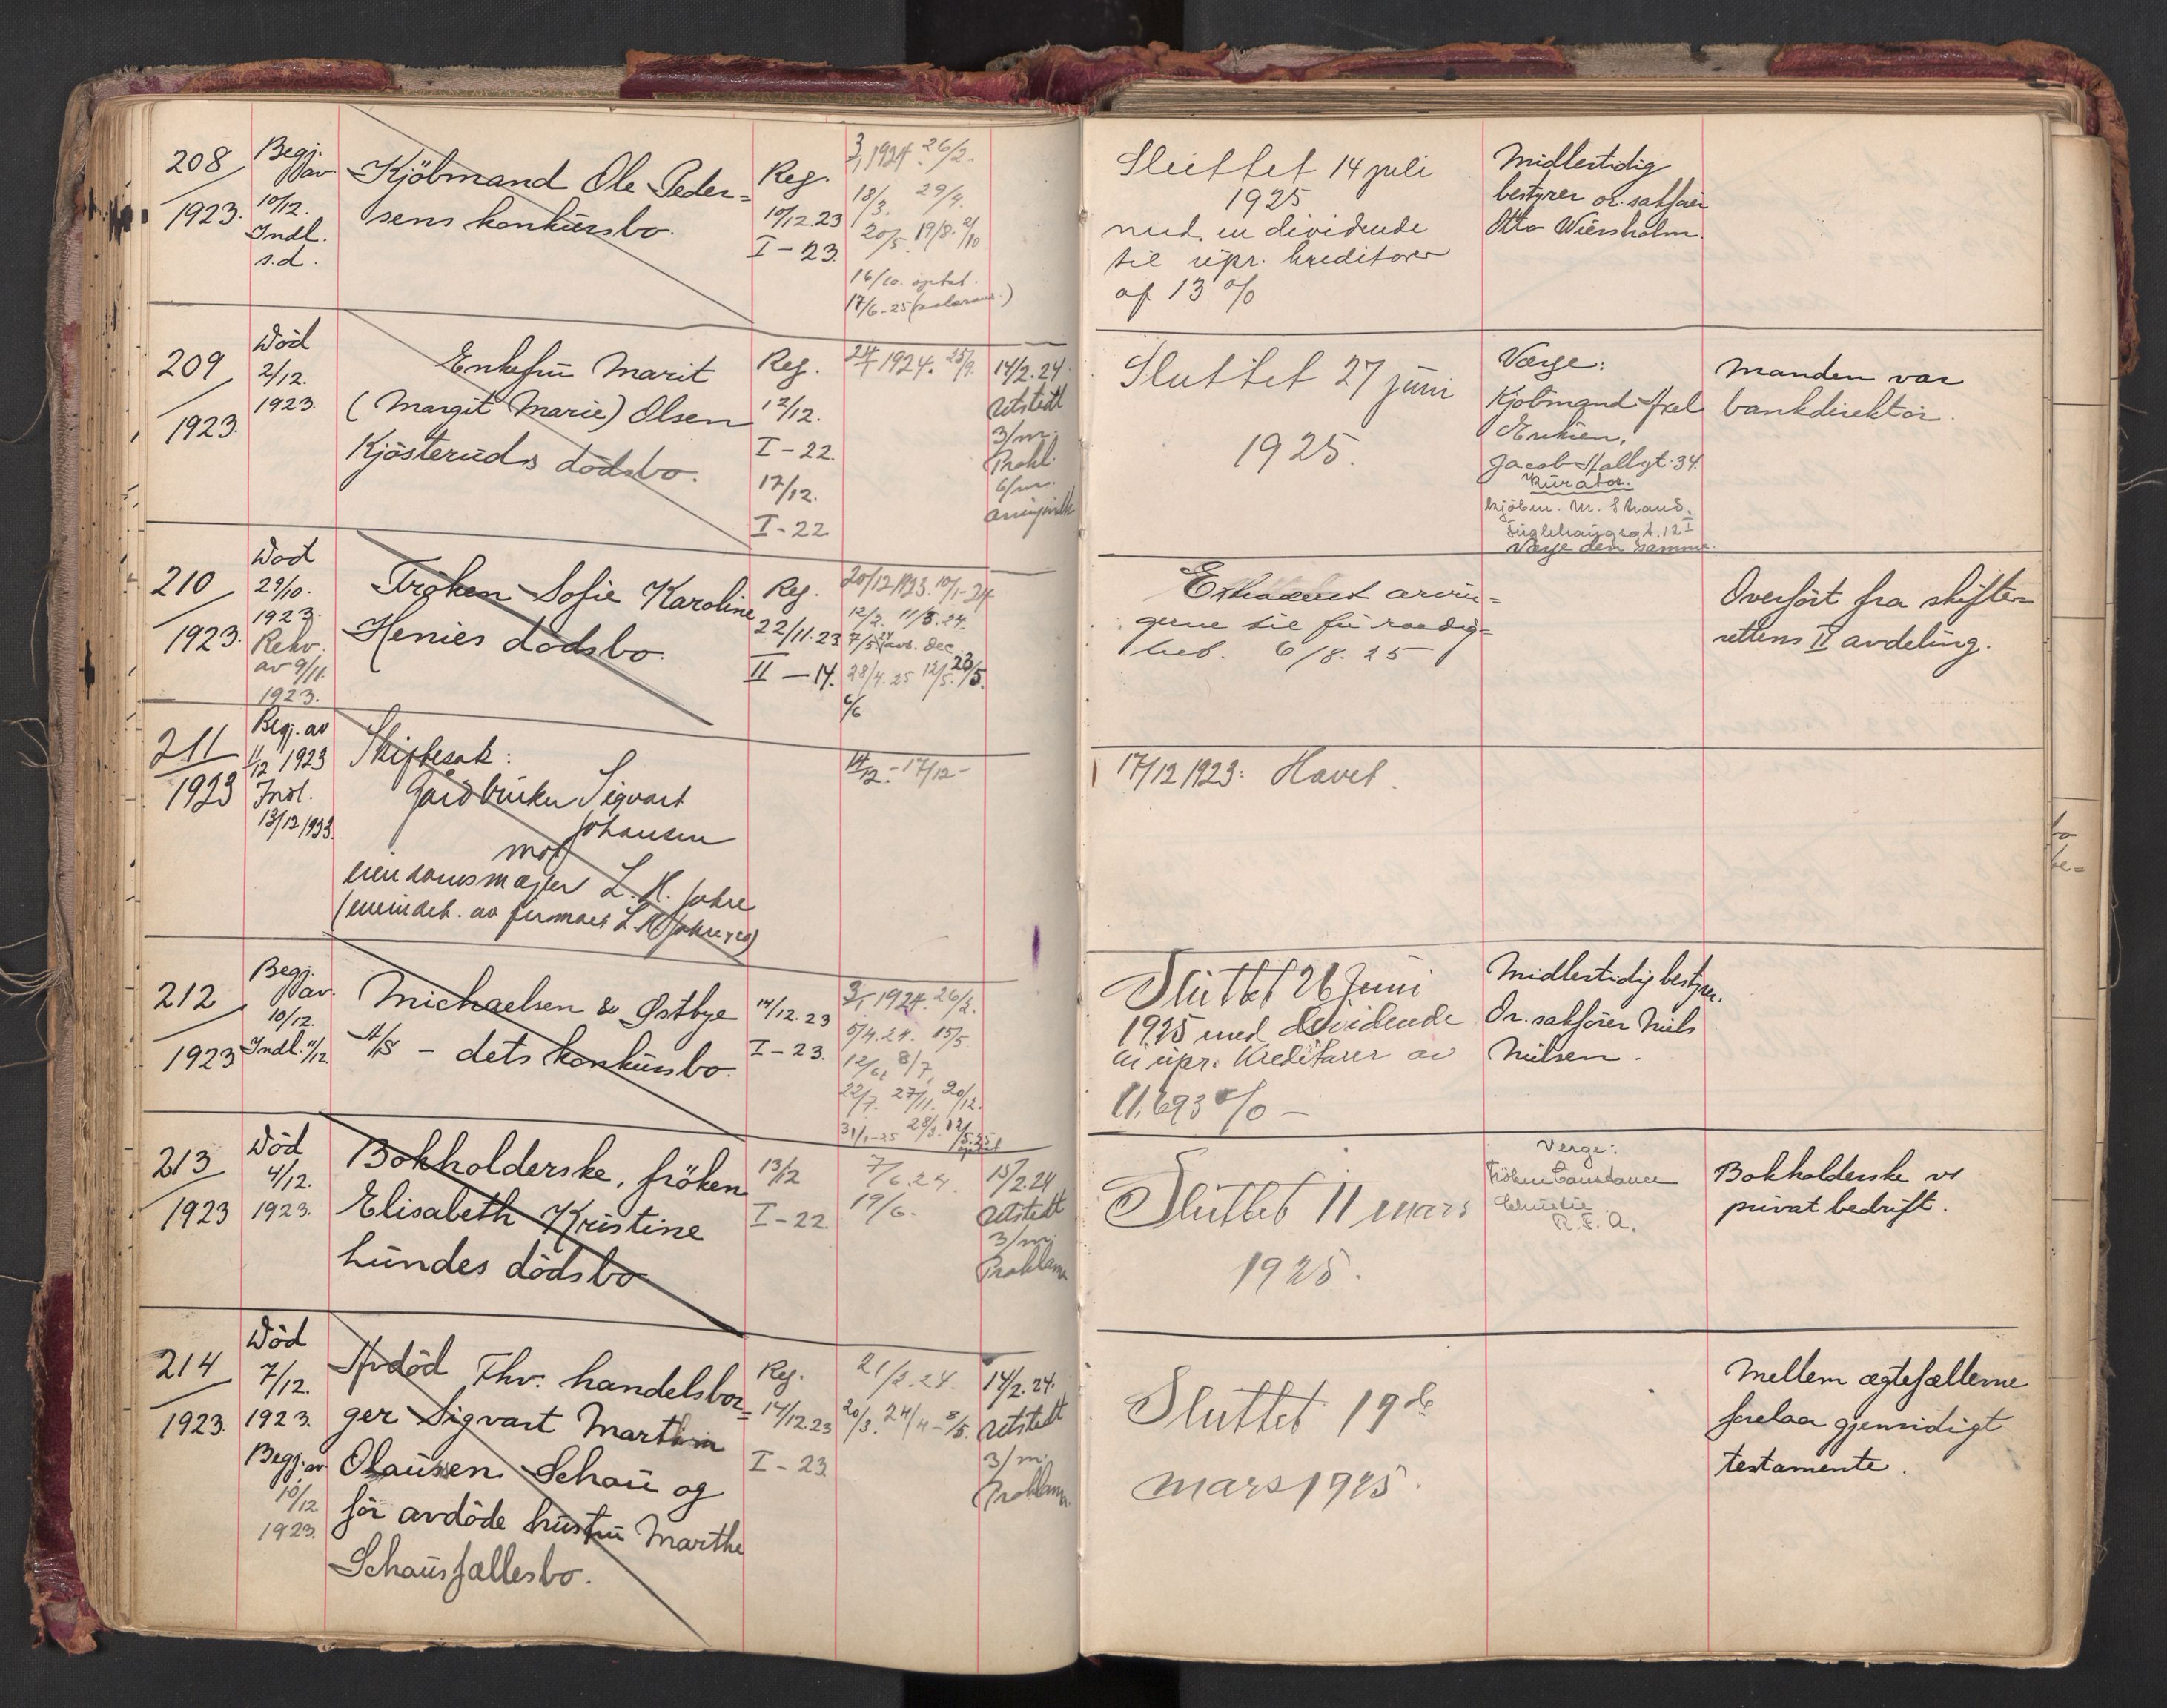 208
1923.
Begj.
av
10/12.
Indl.
s.d.
Kjöbmand Ole Peder=
sens konkursbo.
Reg.
10/12.23
I-23.
3/1 1924. 26/2.
18/3. 29/4.
20/5. 19/8. 2/10
16/10. optat.
17/6-25
Sluttet 14 juli
1925
med en dividende
til upr. kreditorer
af 13 %
Midlertidig
bestyrer or. sakförer
Otto Wiersholm.
209
1923.
Död
2/12.
1923.
Enkefru Marit
(Margit Marie) Olsen
Kjösteruds dödsbo.
Reg.
12/12.
I-22.
17/12.
I-22
1924. 25/9.
14/2.24.
Utstedt
3/m.
Prokl.
6/m.
Sluttet 27 juni
1925.
Værge:
Kjöbmand Axel
Jacob Hallsgt. 34.
Kurator.
Kjöbm. M. Strand.
Fuglehauggt. 12 I
Værge den samme.
Manden var
bankdirektör.
210
1923.
Död
29/10.
1923.
Rekv.
av 9/11.
1923.
Fröken Sofie Karoline
Henies dödsbo.
Reg.
22/11.23
II-14.
20/12 1923. 10/1-24
12/2. 11/3.24.
7/5. 24 avs. dec.
28/4.25 12/5. 23/5.
6/6
Extradert arvin=
gerne til fri raadig=
het. 6/8.25
Overfört fra skifte=
rettens II avdeling.
211
1923
Begj. av
11/12 1923
Indl.
13/12 1923.
Skiftesak:
Gårdbruker Sigvart
Johansen
mot
eiendomsmægler L. H. Jahre
(eneindeh. av firmaet L. H. Jahre & Co)
14/12. - 17/12 -
17/12 1923: Hævet.
212
1923
Begj.
av
10/12.
Indl. 11/12.
Michaelsen & Østbye
A/S - dets konkursbo.
14/12.23
I-23.
3/1. 1924. 26/2.
5/4.24. 15/5.
12/6. 8/7.
22/7. 27/11. 20/12.
31/1-25 28/3. 12/5.25
Sluttet 26 Juni
1925 med dividende
til upr. Kreditorer av
11.693 % -
Midlertidig bestyrer.
Or. sakförer Niels
Nielsen.
213
1923
Död
4/12.
1923.
Bokholderske, fröken
Elisabeth Kristine
Lundes dödsbo
13/12
I-22.
7/6.24.
19/6.
15/2.24
Utstedt
3/m.
Proklama
Sluttet 11 mars
1925.
Verge:
Fröken Constance
Christie.
Bokholderske v/
privat bedrift.
214
1923.
Död
7/12.
1923.
Begj. av
10/12
1923.
Avdöd Thv. handelsbor=
ger Sigvart Martin
Olausen Schau og
för avdöde hustru Marthe
Schaus fællesbo.
Reg.
14/12.23
I-23.
21/2.24.
20/3. 24/4 - 8/5.
14/2.24.
Utstedt
3/m.
Proklama.
Sluttet 19de
mars 1925.
Mellem ægtefællerne
forelaa gjensidigt
testamente.